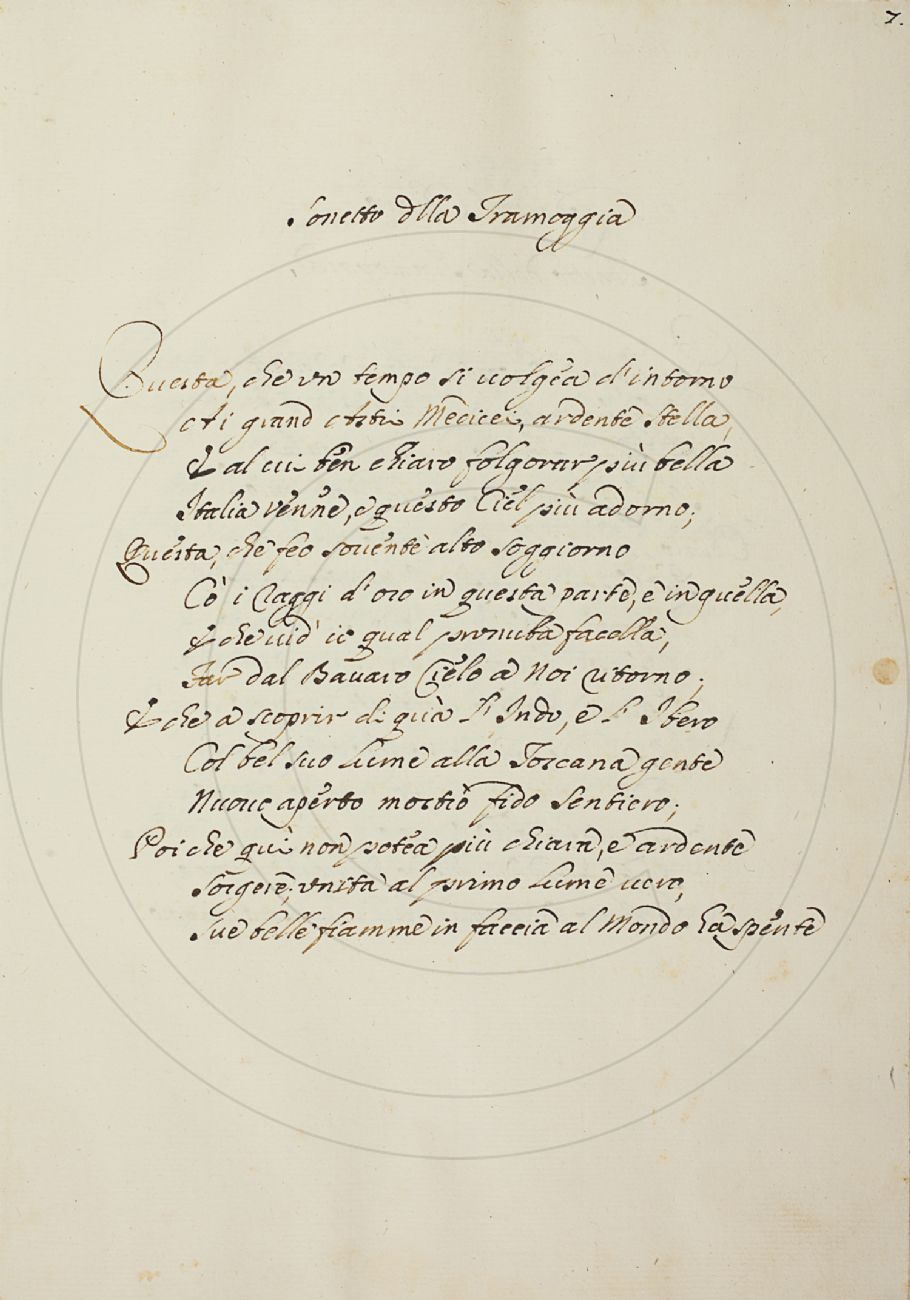 7.
Sonetto dlla Tramoggia
Questa, che vn tempo si uolgea d'intorno
Ai grand Astri Medicei, ardente Stella,
E al cui ben chiaro folgorar più bella
Italia venne, e questo Ciel più adorno;
Questa, che feo souente alto soggiorno
Cò i Raggi d'oro in questa parte, e in quella,
E che uid'io qual pronuba facella,
Far dal Bauaro Cielo a Noi ritorno;
E che a scoprir di quà l'Indo, e l'Ibero
Col bel suo Lume alla Toscana gente
Nuouo aperto mostrò fido Sentiero;
Poi che quì non potea più chiara, e ardente
Sorgere, vnita al primo Lume uero,
Sue belle fiamme in faccia al Mondo hà spente